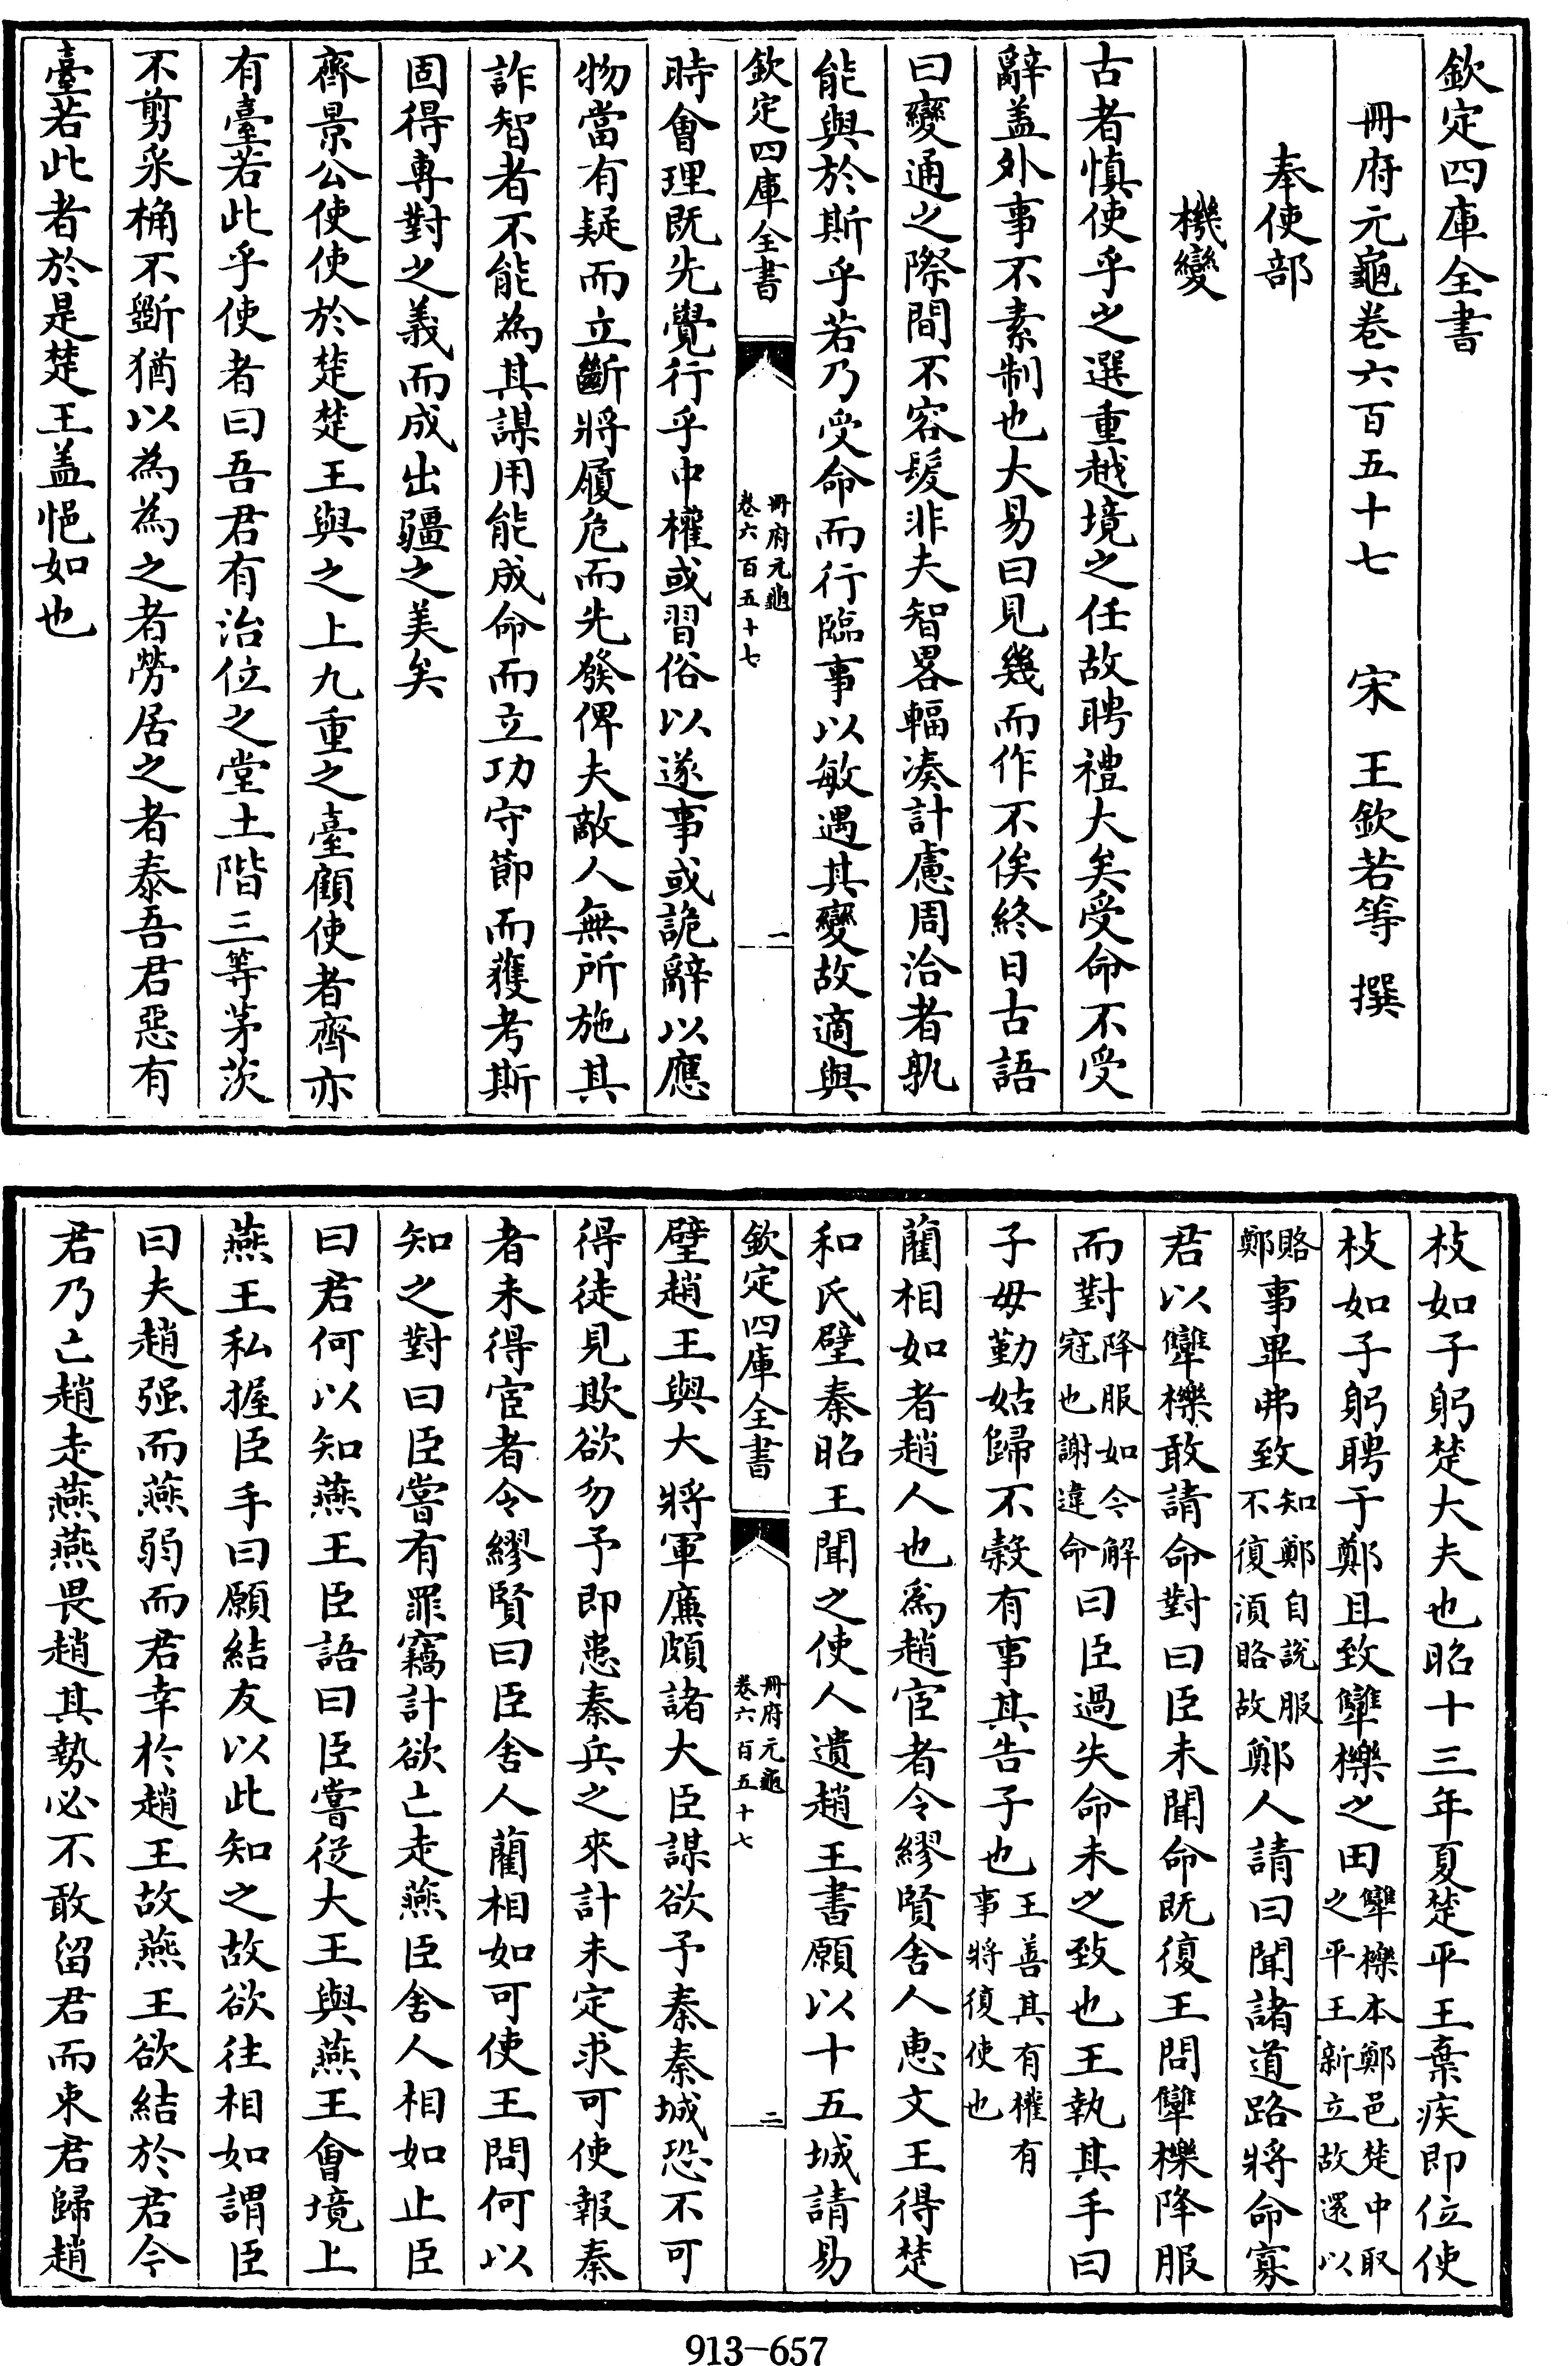 欽定四庫全書
冊府元龜卷六百五十七　宋　王欽若等　撰
奉使部
機變
古者慎使乎之選重越境之任故聘禮大矣受命不受
辭盖外事不素制也大易曰見幾而作不俟終日古語
曰變通之際間不容髮非夫智畧輻凑計慮周洽者孰
能與於斯乎若乃受命而行臨事以敏遇其變故適與
欽定四庫全書
冊府元龜
卷六百五十七
一
時會理既先覺行乎中權或習俗以遂事或詭辭以應
物當有疑而立斷將履危而先發俾夫敵人無所施其
詐智者不能為其謀用能成命而立功守節而獲考斯
固得專對之義而成出疆之美矣
齊景公使使於楚楚王與之上九重之臺顧使者齊亦
有臺若此乎使者曰吾君有治位之堂土階三等茅茨
不剪采桷不斵猶以為為之者勞居之者泰吾君惡有
臺若此者於是楚王盖悒如也
枝如子躬楚大夫也昭十三年夏楚平王棄疾即位使
枝如子躬聘于鄭且致犫櫟之田犫櫟本鄭邑楚中取之平王新立故還以
賂鄭事畢弗致知鄭自說服不復湏賂故鄭人請曰聞諸道路將命寡
君以犫櫟敢請命對曰臣未聞命既復王問犫櫟降服
而對降服如今解冠也謝違命曰臣過失命未之致也王執其手曰
子毋勤姑歸不榖有事其告子也王善其有權有事將復使也
藺相如者趙人也為趙宦者令繆賢舍人惠文王得楚
和氏璧秦昭王聞之使人遺趙王書願以十五城請易
欽定四庫全書
冊府元龜
卷六百五十七
二
璧趙王與大將軍廉頗諸大臣謀欲予秦秦城恐不可
得徒見欺欲勿予即患秦兵之來計未定求可使報秦
者未得宦者令繆賢曰臣舍人藺相如可使王問何以
知之對曰臣嘗有罪竊計欲亡走燕臣舍人相如止臣
曰君何以知燕王臣語曰臣嘗從大王與燕王會境上
燕王私握臣手曰願結友以此知之故欲往相如謂臣
曰夫趙强而燕弱而君幸扵趙王故燕王欲結於君今
君乃亡趙走燕燕畏趙其勢必不敢留君而束君歸趙
913-657